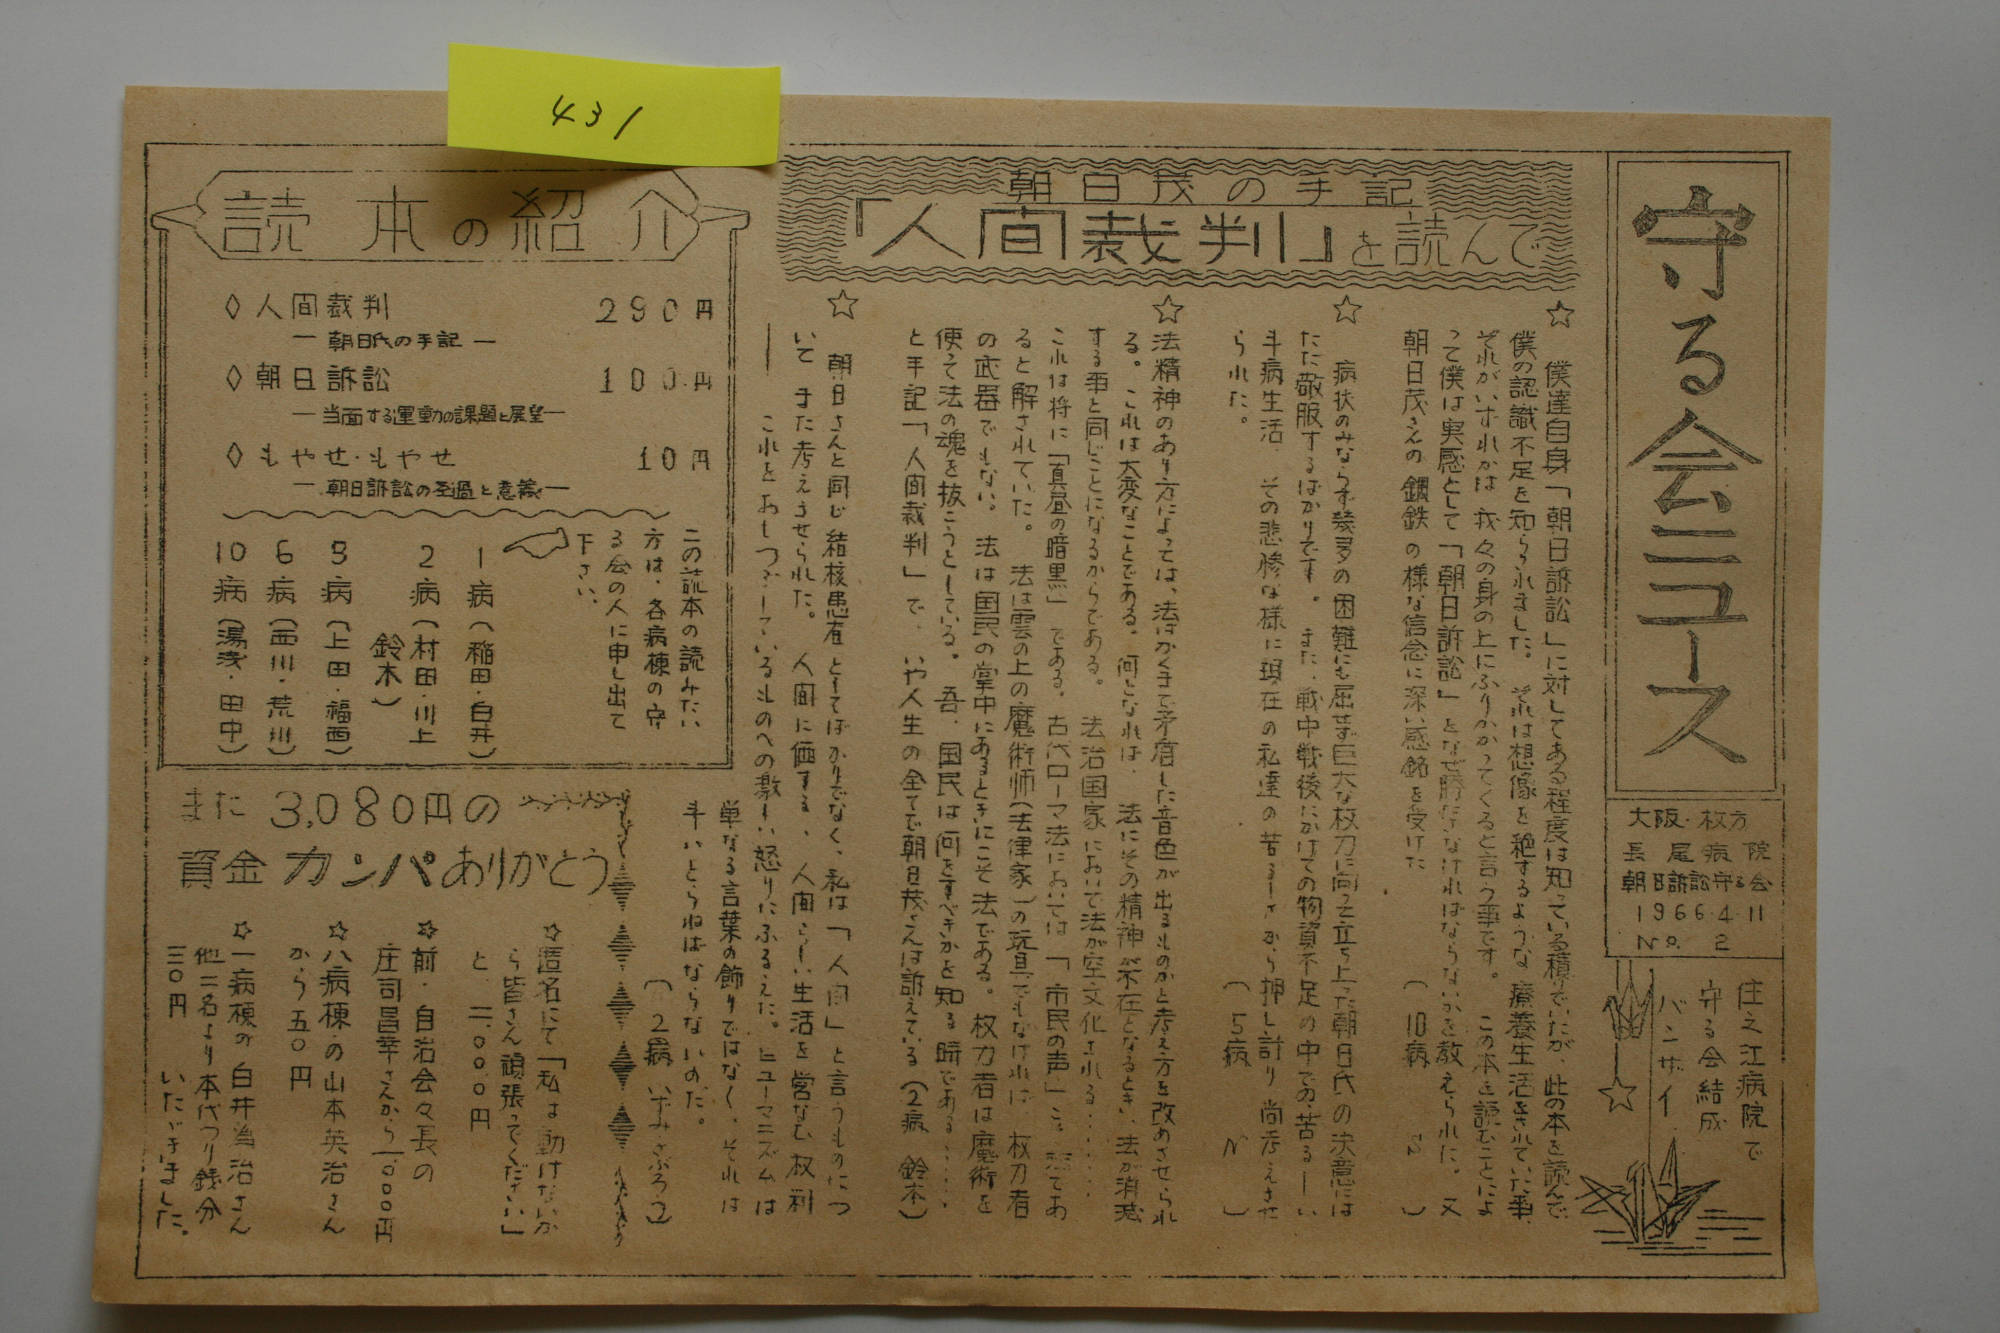 431
守る会ニュース
大阪・枚方
長尾病院
朝日訴訟守る会
1966・4・11
No. 2
住之江病院で
守る会結成
バンザイ
朝日茂の手記
「人間裁判」を読んで
☆ 僕達自身「朝日訴訟」に対してある程度は知っている積りでいたが、此の本を読んで、
僕の認識不足を知らされました。それは想像を絶するような療養生活をされていた事、
それがいずれかは我々の身の上にふりかかってくると言う事です。この本を読むことによ
って僕は実感として「朝日訴訟」となぜ勝たさなければならないかを教えられた。又
朝日茂さんの鋼鉄の様な信念に深い感銘を受けた
(10病 S)
☆ 病状のみならず数多の困難にも屈せず巨大な权力に向って立ち上った朝日氏の決意には
ただ敬服するばかりです。また、戦中戦後にかけての物資不足の中での苦るしい
斗病生活、その悲惨な様に現在の私達の苦るしさから押し計り尚考えさせ
られた。
(5病 N)
☆ 法精神のあり方によっては、法はかくまで矛盾した音色が出るものかと考え方を改めさせられ
る。これは大変なことである。何となれば、法にその精神が不在となるとき、法が消滅
する事と同じことになるからである。法治国家において法が空文化される‥‥‥
これは将に「真昼の暗黒」である。古代ローマ法においては「市民の声」こそ法であ
ると解されていた。法は雲の上の魔術师(法律家)の玩具でもなければ、权力者
の武器でもない。法は国民の掌中にあるときにこそ法である。权力者は魔術を
使って法の魂を抜こうとしている。吾、国民は何をすべきかを知る時である‥‥‥
と手記「人间裁判」で、いや人生の全てで朝日茂さんは訴えている (2病 鈴木)
☆ 朝日さんと同じ結核患者としてばかりでなく、私は「人间」と言うものにつ
いてまた考えさせられた。人间に価する、人间らしい生活を営なむ权利
― これをおしつぶしているものへの激しい怒りにふるえた。ヒューマニズムは
単なる言葉の飾りではなく、それは
斗いとらねばならないのだ。
(2病 いずみさぶろう)
読本の紹介
◇人間裁判 290円
― 朝日氏の手記 ―
◇朝日訴訟 100円
― 当面する運動の課題と展望 ―
◇もやせ・もやせ 10円
― 朝日訴訟の至過と意義 ―
この読本の読みたい
方は、各病棟の守
る会の人に申し出て
下さい、
1病(稲田・白井)
2病(村田・川上
鈴木)
5病(上田・福西)
6病(西川・荒川)
10病(湯浅・田中)
また3,080円の
資金カンパありがとう
☆匿名にて「私は動けないか
ら皆さん頑張ってください」
と、二、〇〇〇円
☆前・自治会々長の
庄司昌幸さんから一、〇〇〇円
☆八病棟の山本英治さん
から五〇円
☆一病棟の白井当治さん
他二名より本代つり銭分
三〇円 いただきました。